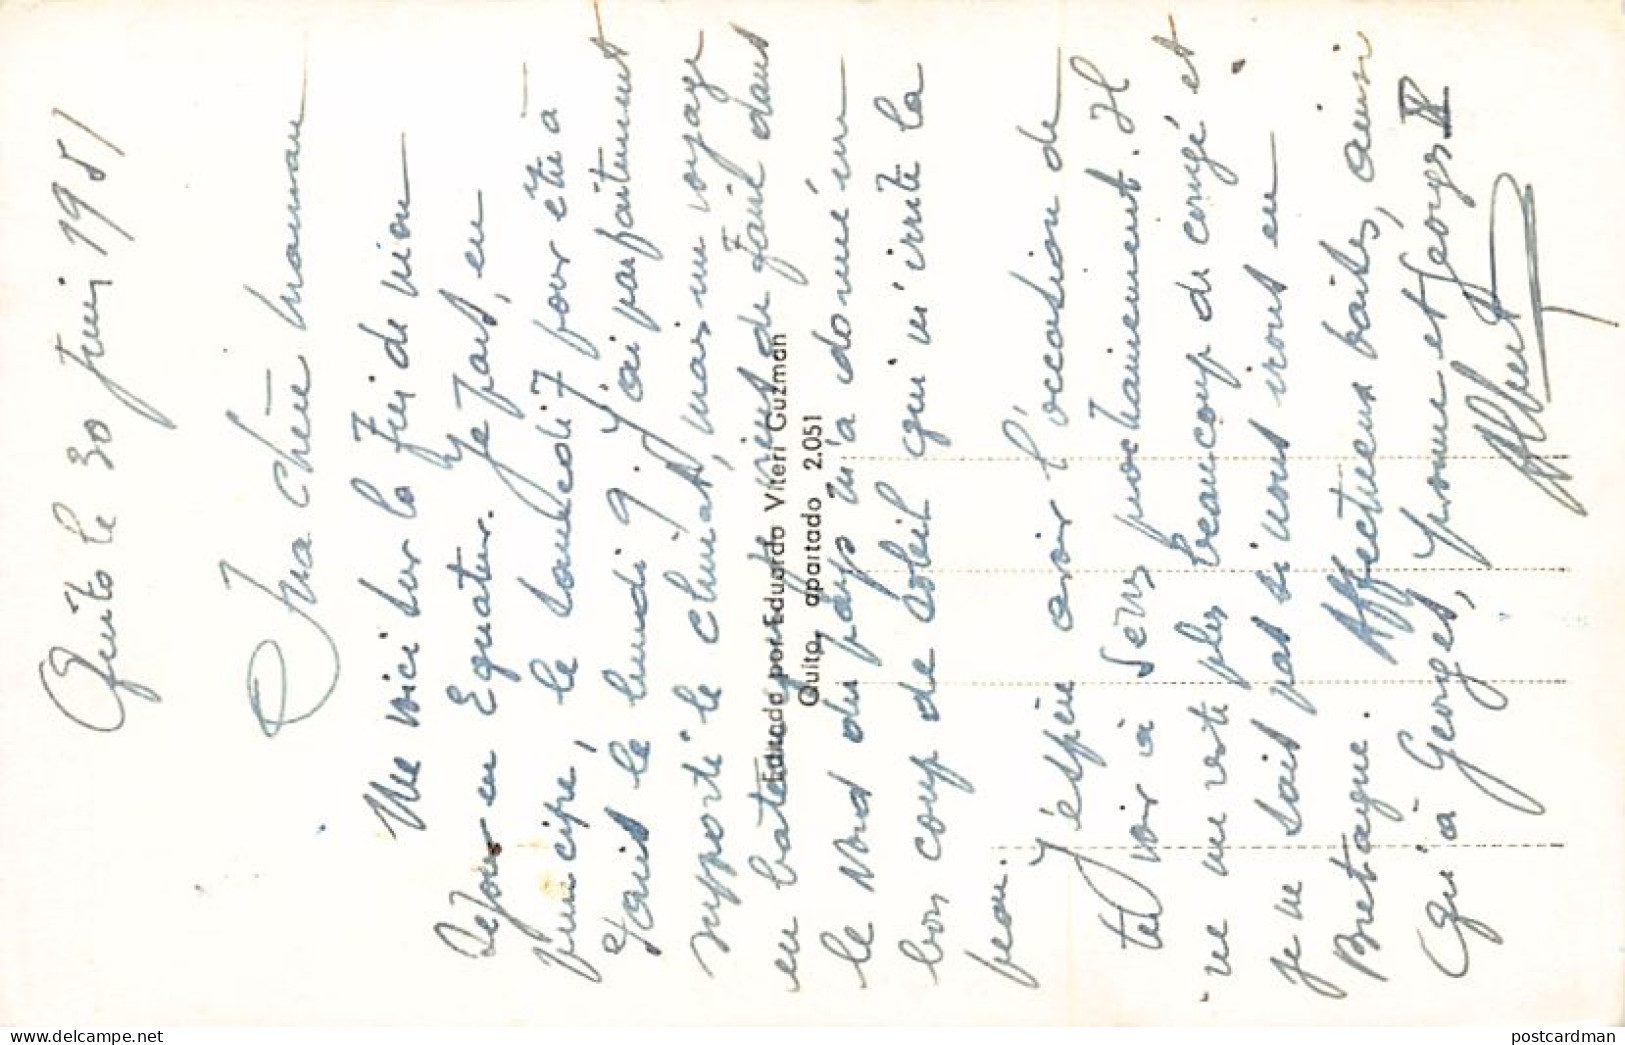 Quito le 30 Juin 1951
Ma chère maman
Me voici sur la fin de mon
séjour en Equateur. Je pars, en
principe, le samedi 7 pour être à
Paris le lundi 9. J'ai parfaitement
supporté le climat, mais un voyage
en bateau de faire dans
le Nord du pays m'a donné un
bon coup de soleil qui m'irrite la
peau.
J'espère avoir l'occasion de
te voir à Sens prochainement. Il
ne me reste plus beaucoup de congé et
je ne sais pas si nous irons en
Bretagne. Affectueux baisers, ainsi
qu'à Georges, Yvonne et Georges II
Albert
Editada por Eduardo Viteri Guzman
Quito, apartado 2.051
delcampe.net
postcardman